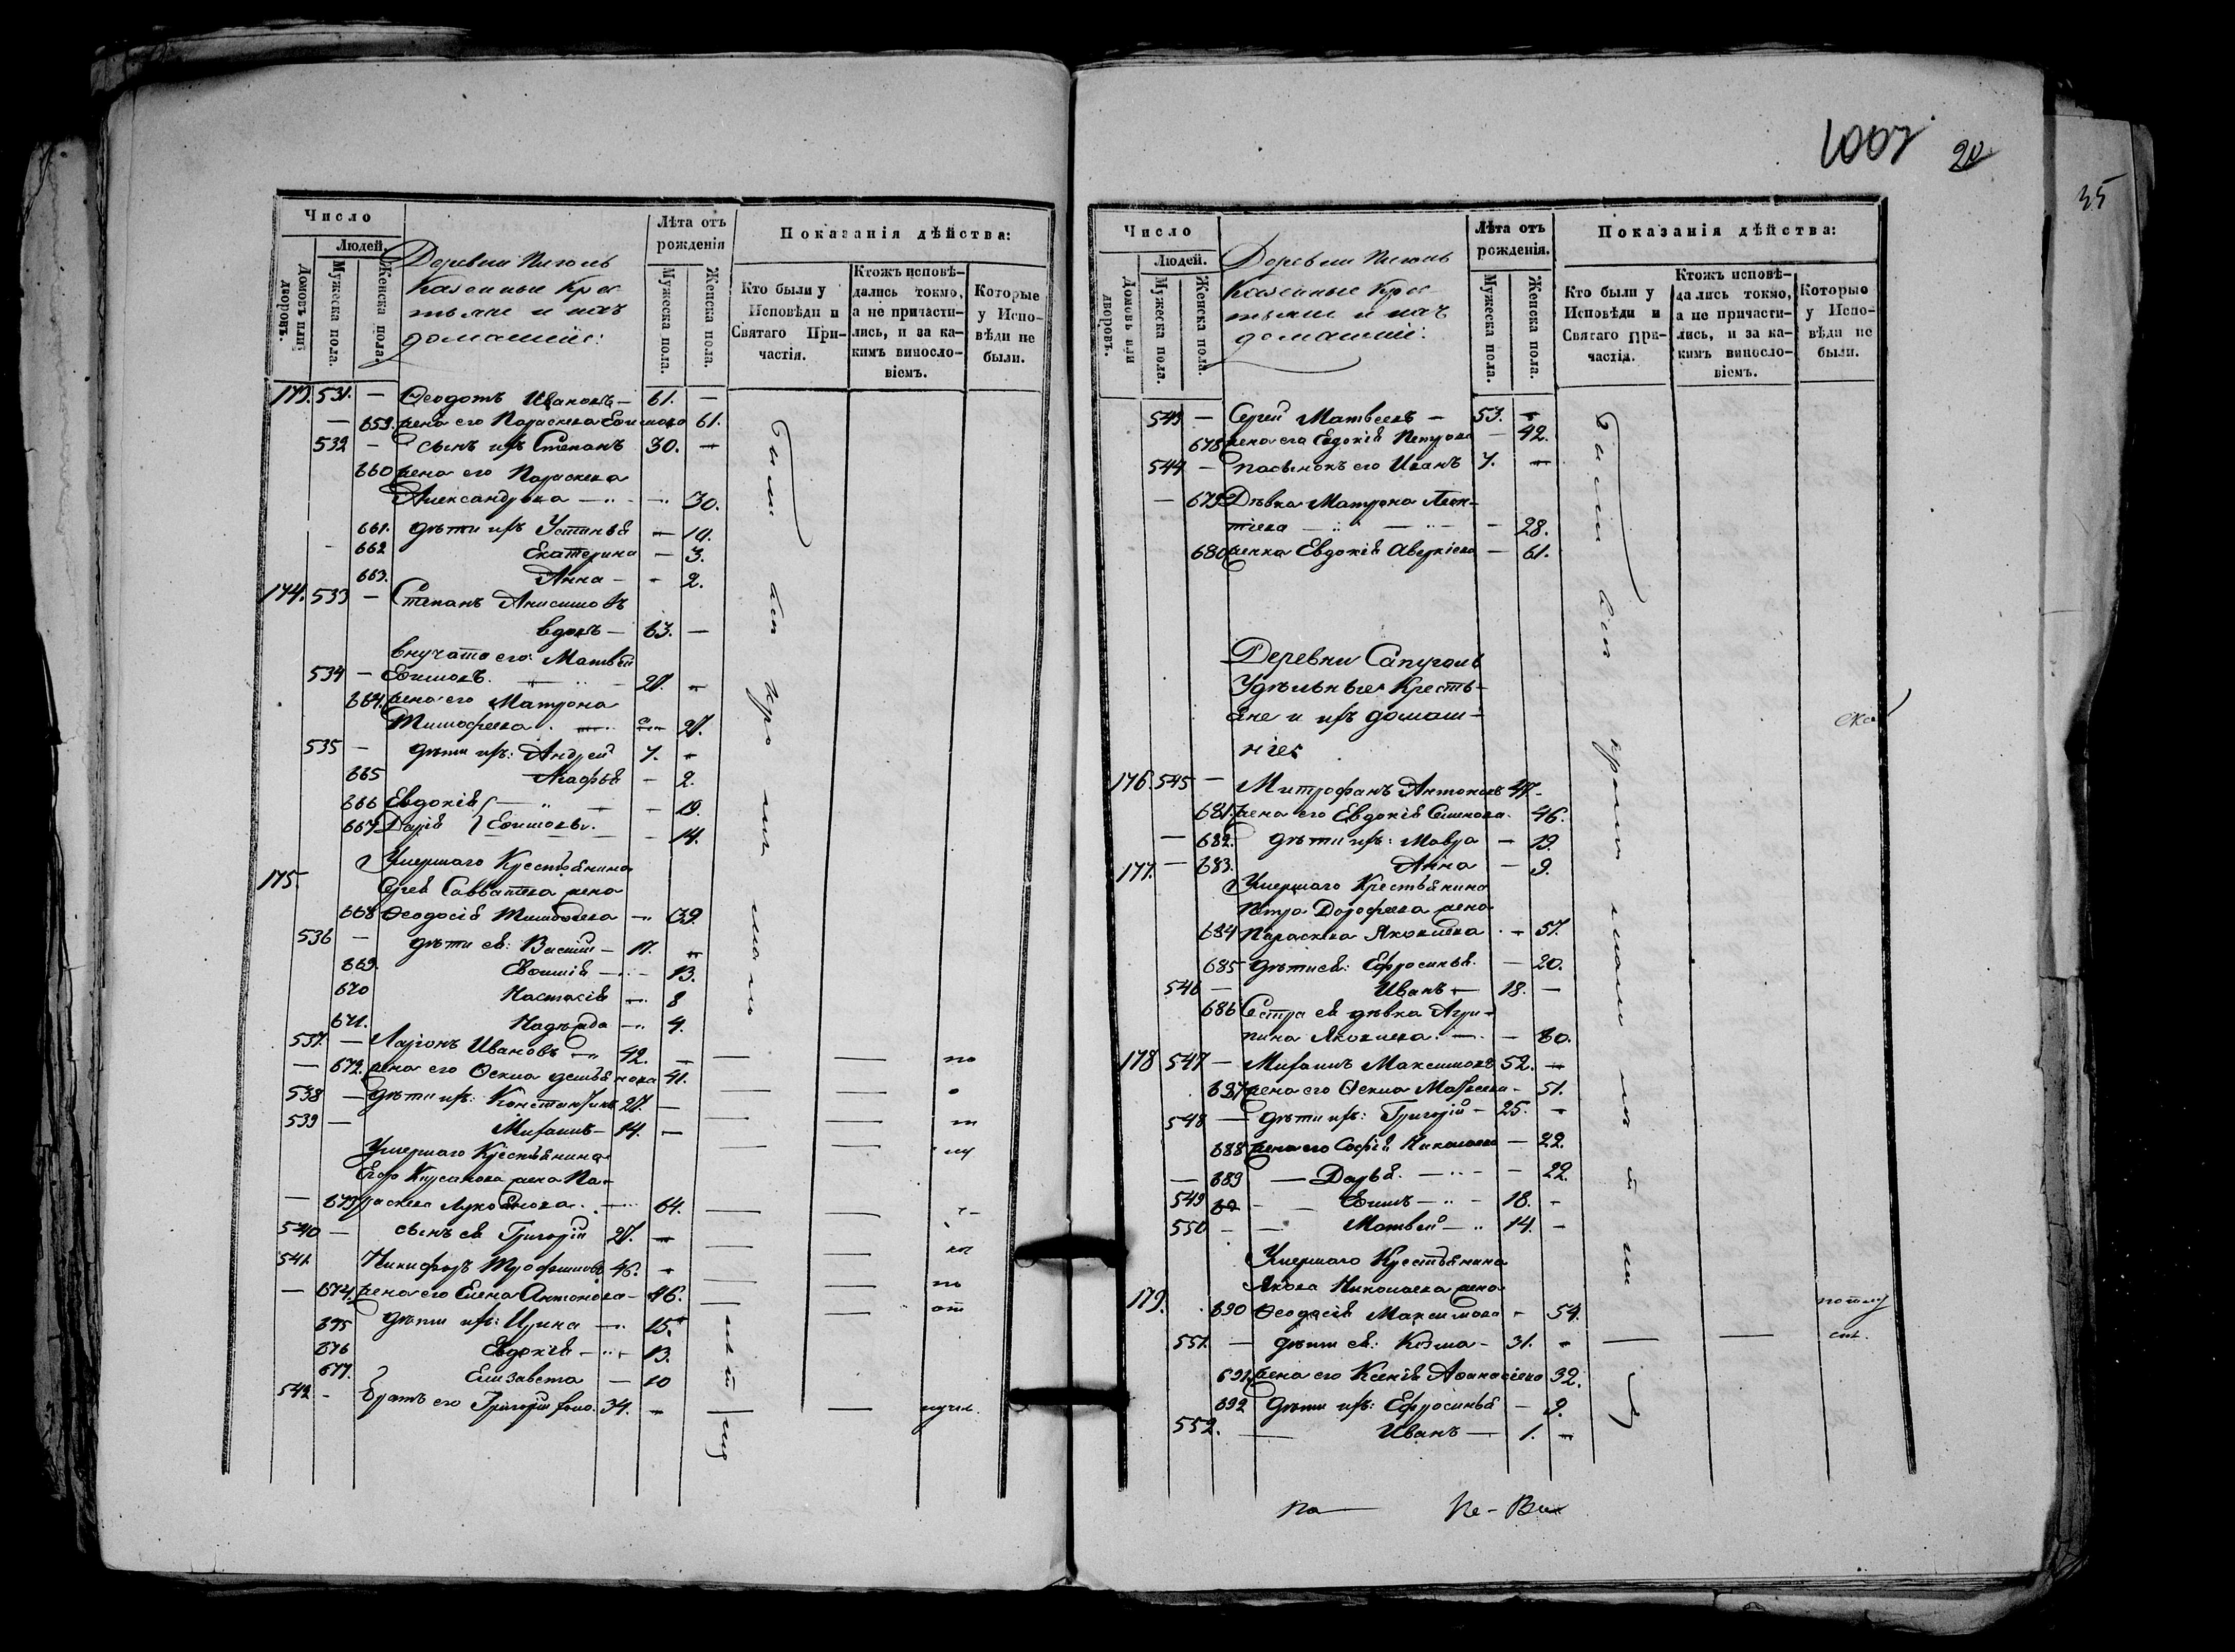 Число
Людей.
Домовъ или дворовъ.
Мужеска пола.
Женска пола.
Деревни Пиголь
Казенные Крес
тьяне и ихъ
домашніе:
Лѣта отъ рожденія
Мужеска пола.
Женска пола.
Показанія дѣйства:
Кто были у Исповѣди и Святаго Причастія.
Ктожъ исповѣдались токмо, а не причастились, и за какимъ винословіемъ.
Которые у Исповѣди не были.
173. 531. — Ѳеодотъ Ивановъ — 61. —
— 659. жена его Параскева Ефимова 61.
532 — сынъ ихъ Степанъ 30. —
660 жена его Параскева
Александрова — 30.
661. дѣти ихъ Устинья — 10.
662 Екатерина — 3.
663. Анна — 2.
174. 533 — Степанъ Анисимовъ
вдовъ — 63. —
внучата его Матвей
534 — Ефимовъ. 27. —
664. жена его Матрона
Тимофеева. 27.
535 — дѣти ихъ: Андрей 7. —
665 Агафья — 2.
666 Евдокія — 19.
667 Дарія Ефимовы. — 14.
175. Умершаго Крестьянина
Сергея Савватеева жена
668 Ѳеодосія Тимофеева — 39.
536 — дѣти ея: Василій — 17. —
669. Евфимія — 13.
670 Настасія — 8
671. Надежда — 4.
537. — Ларіонъ Ивановъ — 42. — — — по
— 672. жена его Ѳекла Демьянова 41. — — о
538 — дѣти ихъ: Константинъ 27. — — — т
539 — Михаилъ — 14. — — — лу
Умершаго Крестьянина
Егора Кирсанова жена Па-
— 673 раскева Лукоянова. 64. — —
540 — сынъ ея Григорій 27. — — —
541. Никифоръ Трофимовъ 46. — — — по
— 674. жена его Елена Антонова — 46. — — от
675 дѣти ихъ: Ирина — 15.
676 Евдокія — 13.
677. Елизавета — 10
542. — братъ его Григорій 34. — — — лучк.
были
1007 20
35
Число
Людей.
Домовъ или дворовъ.
Мужеска пола.
Женска пола.
Деревни Пиголь
Казенные Крес
тьяне и ихъ
домашніе:
Лѣта отъ рожденія.
Мужеска пола.
Женска пола.
Показанія дѣйства:
Кто были у Исповѣди и Святаго Причастія.
Ктожъ исповѣдались токмо, а не причастились, и за какимъ винословіемъ.
Которыо у Исповѣди не были.
543 — Сергей Матвеевъ — 53. —
678 жена его Евдокія Петрова — 42.
544 — пасынокъ его Иванъ 7. —
— 679 Дѣвка Матрона Леон-
тіева — 28.
680 женка Евдокія Аверкіева — 61.
Деревни Сапуголь
Удѣльные Кресть-
яне и ихъ домаш-
ніе
176. 545 — Митрофанъ Антоновъ 47. —
681. жена его Евдокія Семенова. 46.
— 682. дѣти ихъ: Мавра — 19.
— 683. Анна — 9.
177. Умершаго Крестьянина
Петра Дорофеева жена
684 Параскева Яковлева. — 57.
685 дѣти ея: Ефросинья. — 20.
546 — Иванъ — 18. —
686 Сестра ея дѣвка Агри-
пина Яковлева. — 60.
178 547 — Михаилъ Максимовъ 52. —
687 жена его Ѳекла Матвеева — 51.
548 — дѣти ихъ: Григорій — 25. —
688 жена его Софія Николаева — 22.
— 689 — Дарья. — 22.
549 — Ефимъ — 18. —
550 — Матвей — 14. —
Умершаго Крестьянина
Якова Николаева жена
179. 690 Ѳеодосія Максимова — 54.
551. — дѣти ея: Козма — 31. — — —
691. жена его Ксенія Афанасіева 32.
692 дѣти ихъ: Ефросинья — 9.
552. — Иванъ — 1. —
были